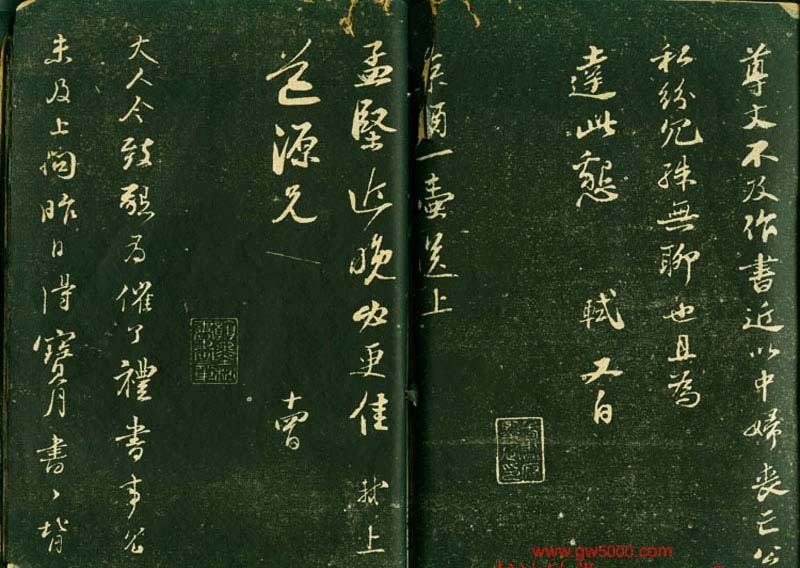 尊丈不及作書近以中婦喪亡公
私紛冗殊無聊也且為
達此懇 軾又白
京酒一壺送上
孟堅近晚必更佳 軾上
道源兄 十四日
大人令致懇為催了禮書事冗
未及上問昨日得寶月書〻背
www.gw5000.com